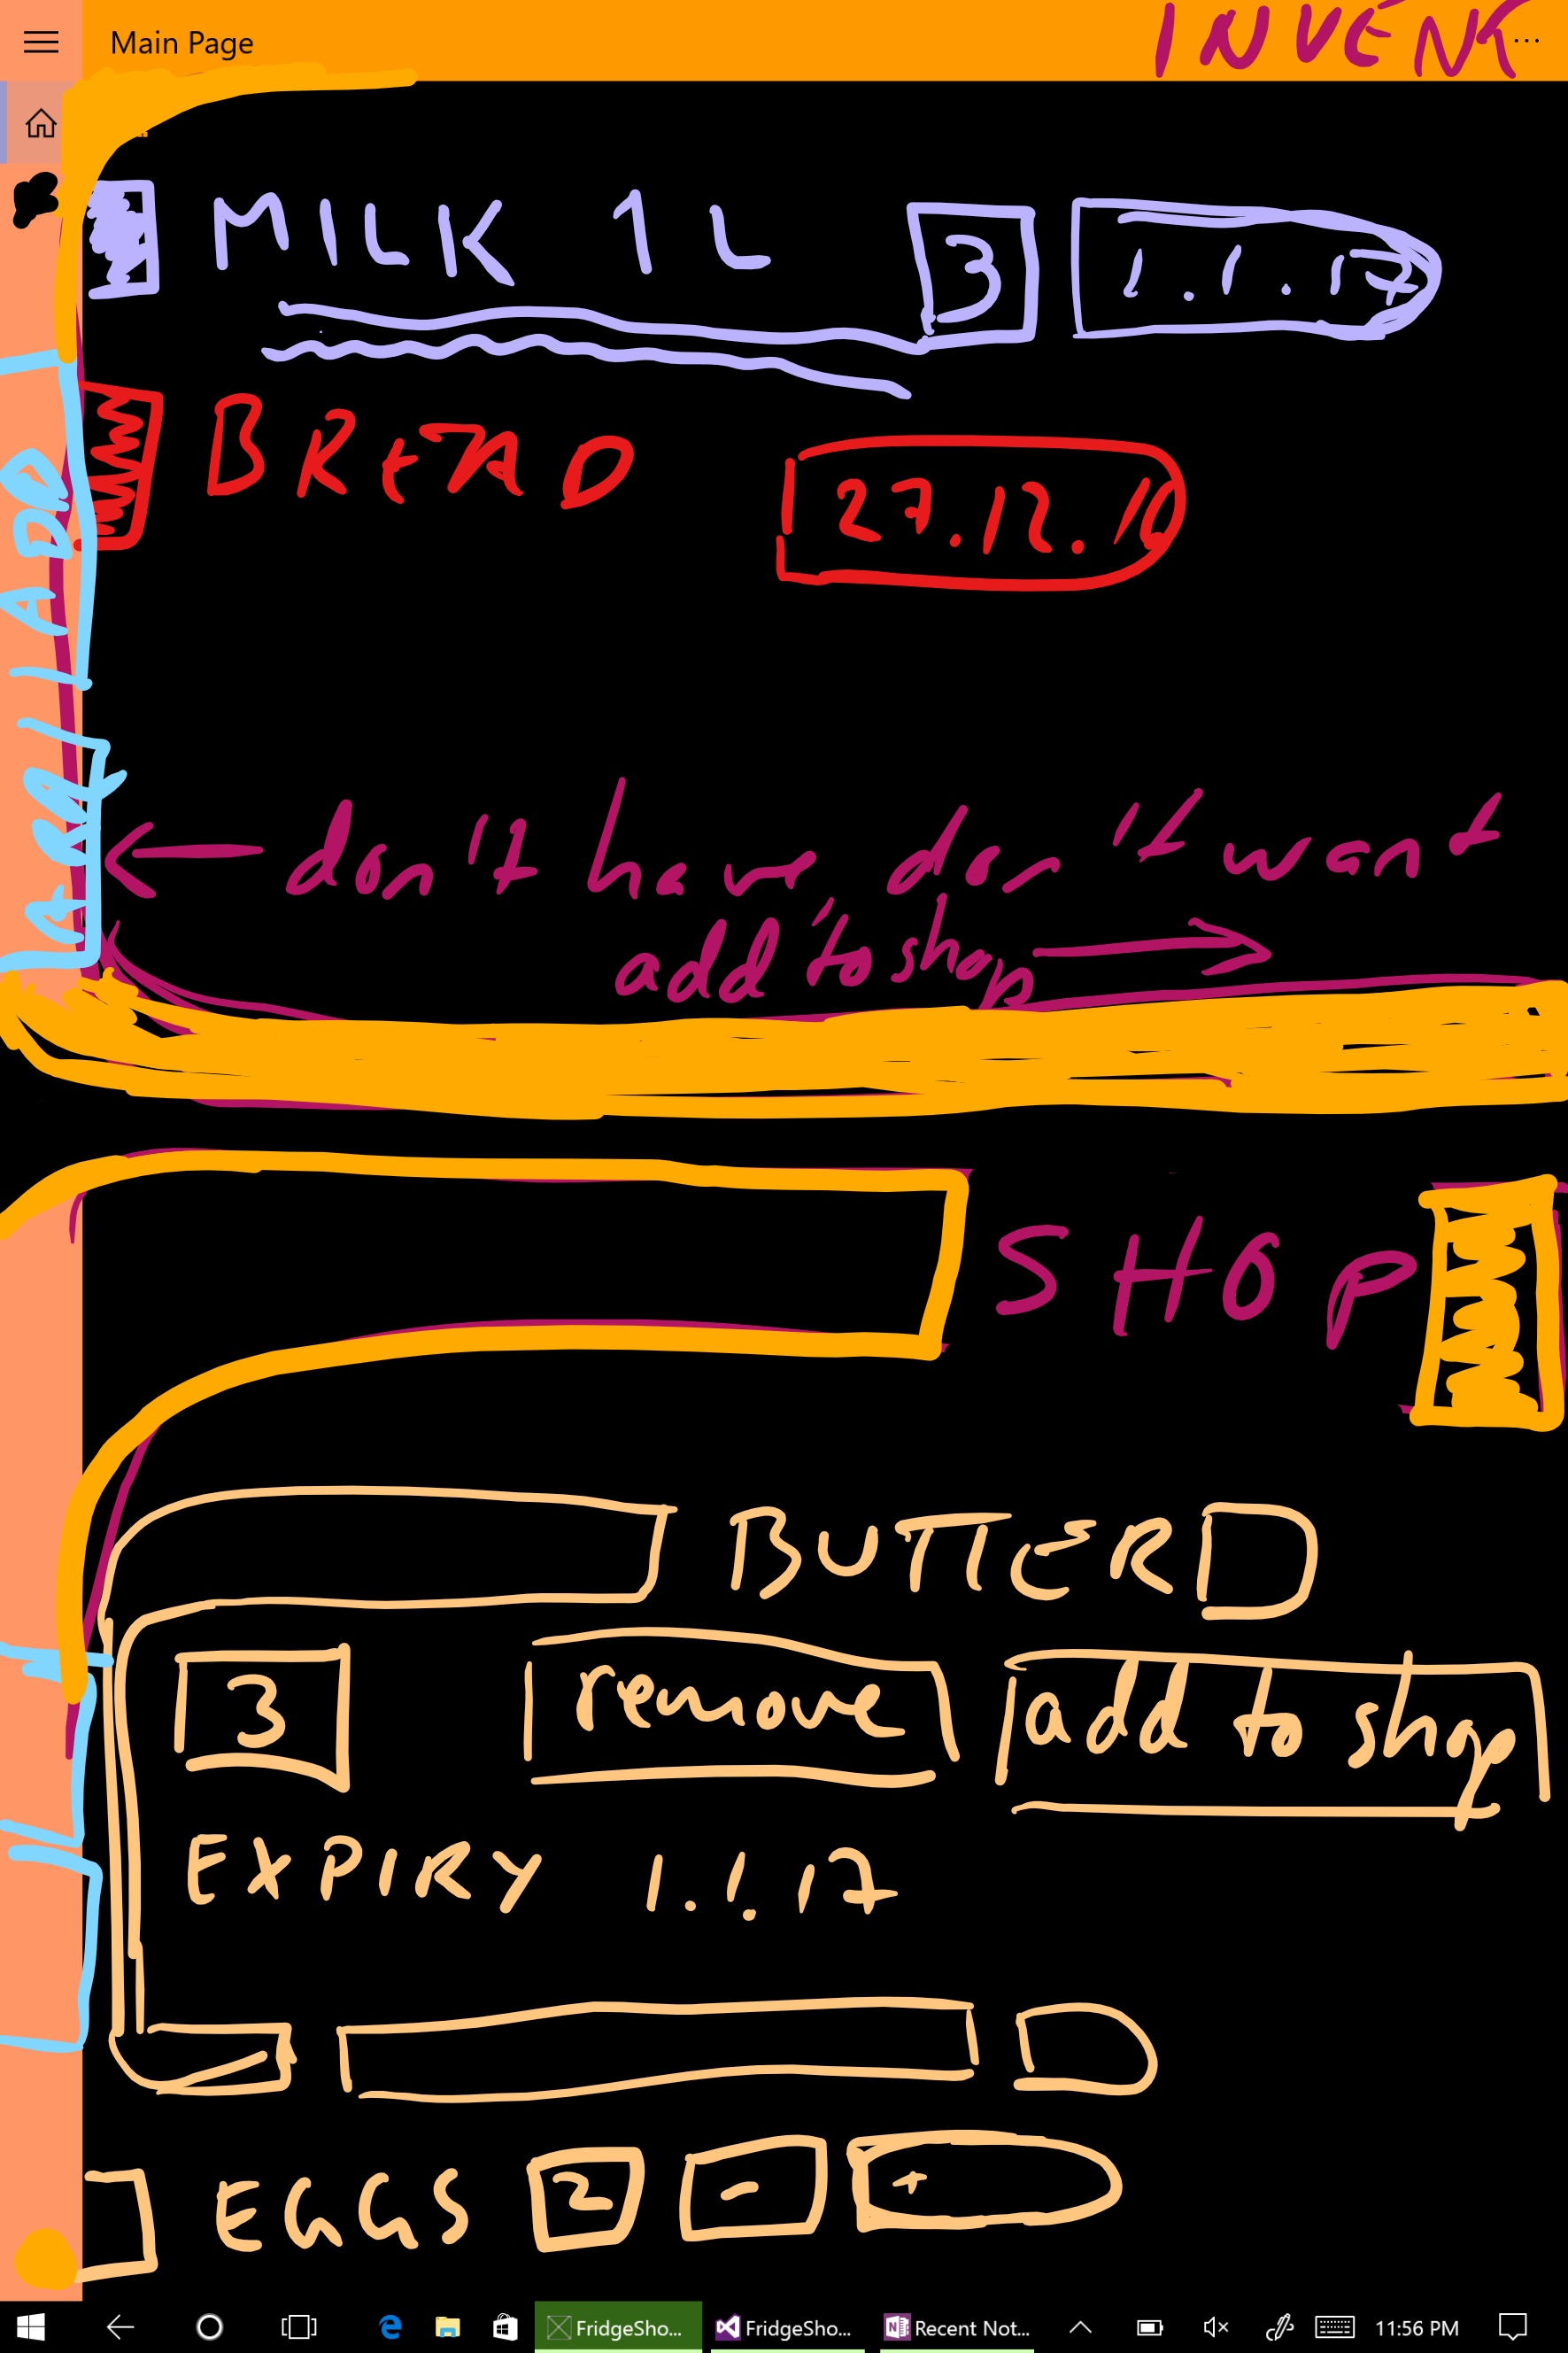 Main Page
INVENT
MILK 1L 3 1.1.17
BREAD 27.12.16
don't have, don't want
add to shop
SHOP
BUTTER
3 remove add to shop
EXPIRY 1.1.17
EGGS 2 - +
FridgeSho... FridgeSho... Recent Not... 11:56 PM